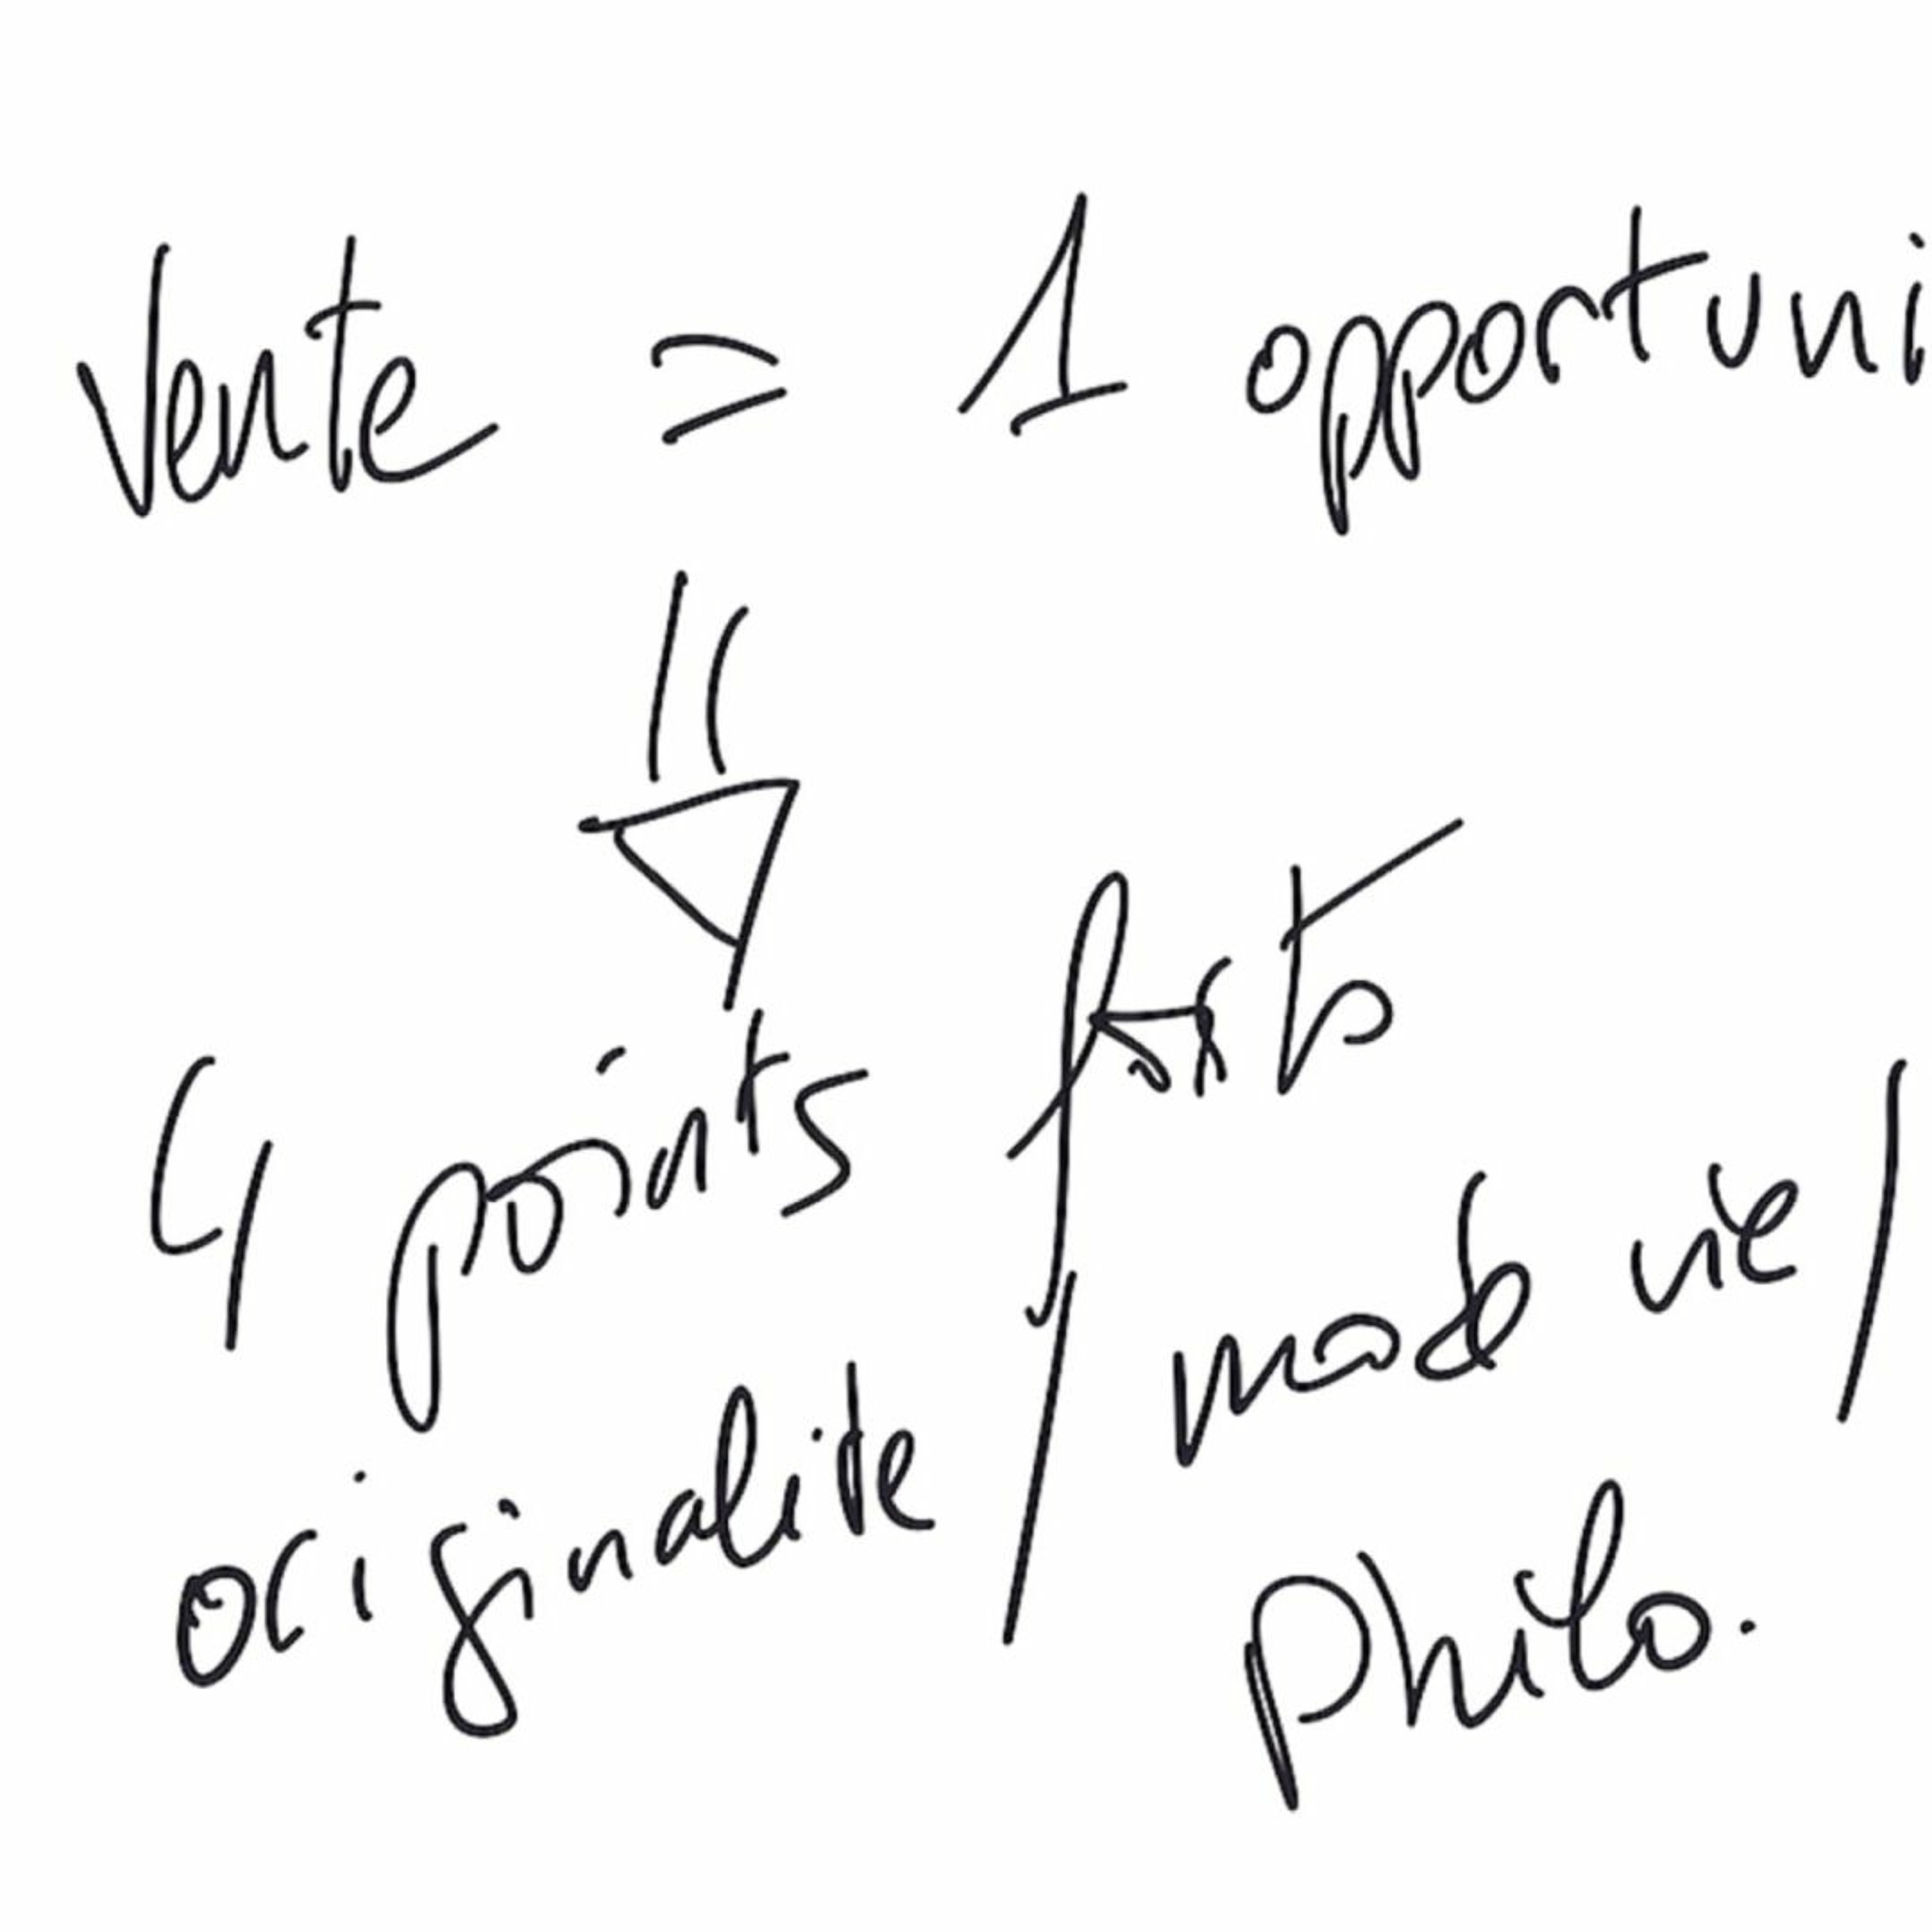 Vente = 1 opportuni
4 points forts
originalite / mode vie /
philo.